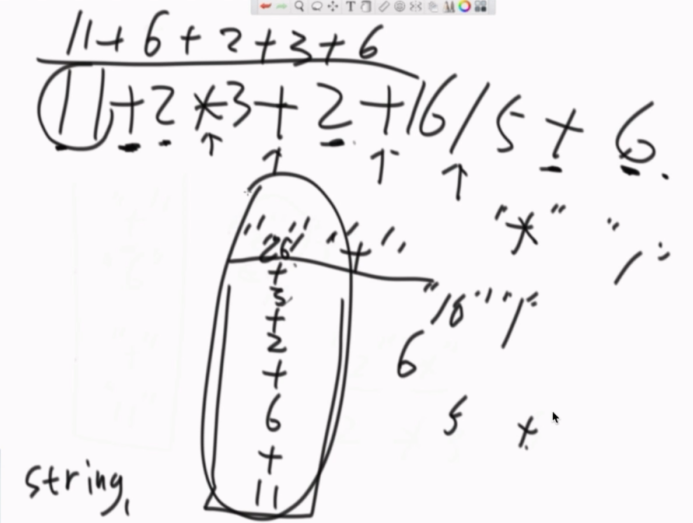 11+6+2+3+6
11+2*3+2+16/5+6.
"*" "/"
"26" "+"
+
3
+
2
+
6
+
11
"16" "/"
6
5 +
string,